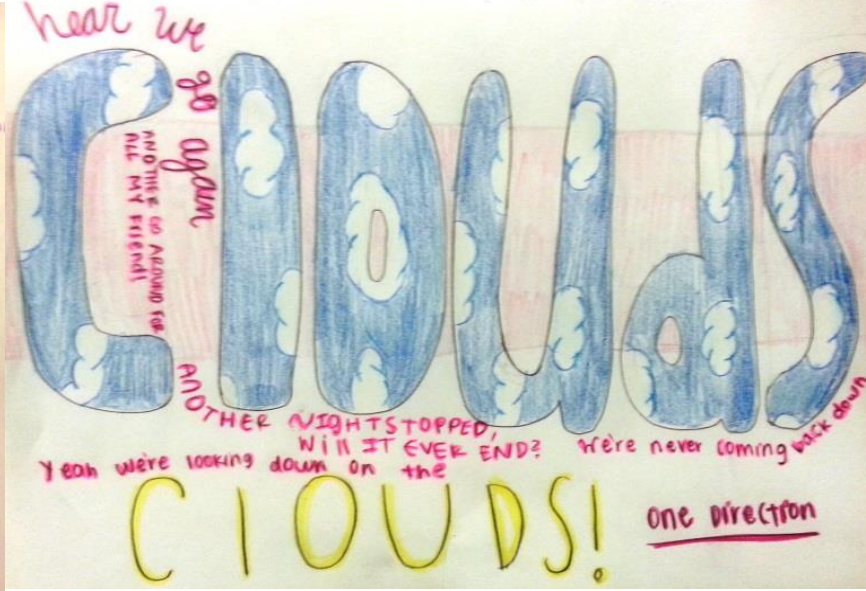 hear we
go again
ClOUdS
ANOTHER GO AROUND FOR
ALL MY FRIENDS
ANOTHER NIGHT STOPPED,
WiLL IT EVER END?
We're never coming back down
Yeah we're looking down on the
ClOUDS!
One Direction